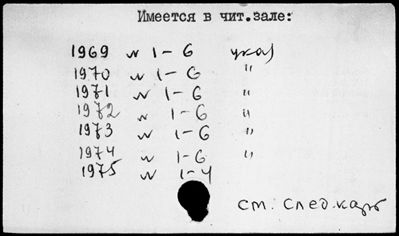 Имеется в чит.зале:
1969 N 1-6 указ
1970 N 1-6 "
1971 N 1-6 "
1972 N 1-6 "
1973 N 1-6 "
1974 N 1-6 "
1975 N 1-4
см. след. карт